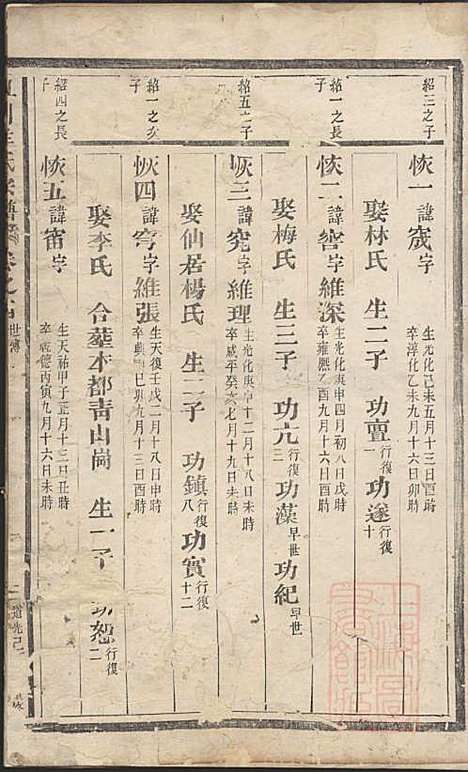 紹三之子
恢一諱宬字
生光化己未五月十三日酉時
卒淳化乙未九月十六日卯時
娶林氏 生二子 功亶行復一 功遂行復十
紹一之長子
恢二諱窖字維深
生光化庚申四月初八日戌時
卒雍熙乙酉九月十六日酉時
娶梅氏 生三子 功亢行復三 功藻早世 功紀早世
紹五之子
恢三諱宄字維理
生光化庚申十二月十八日未時
卒咸平癸卯七月十九日未時
娶仙居楊氏 生二子 功鎮行復八 功實行復十二
紹一之次子
恢四諱穹字維張
生天復壬戌二月十八日申時
卒 巳卯九月十三日酉時
娶李氏 合塟本都青山崗 生一子 功恕行復二
紹四之長子
恢五諱甯字
生天祐甲子正月十三日丑時
卒 德丙寅九月十六日未時
氏宗譜 世傳